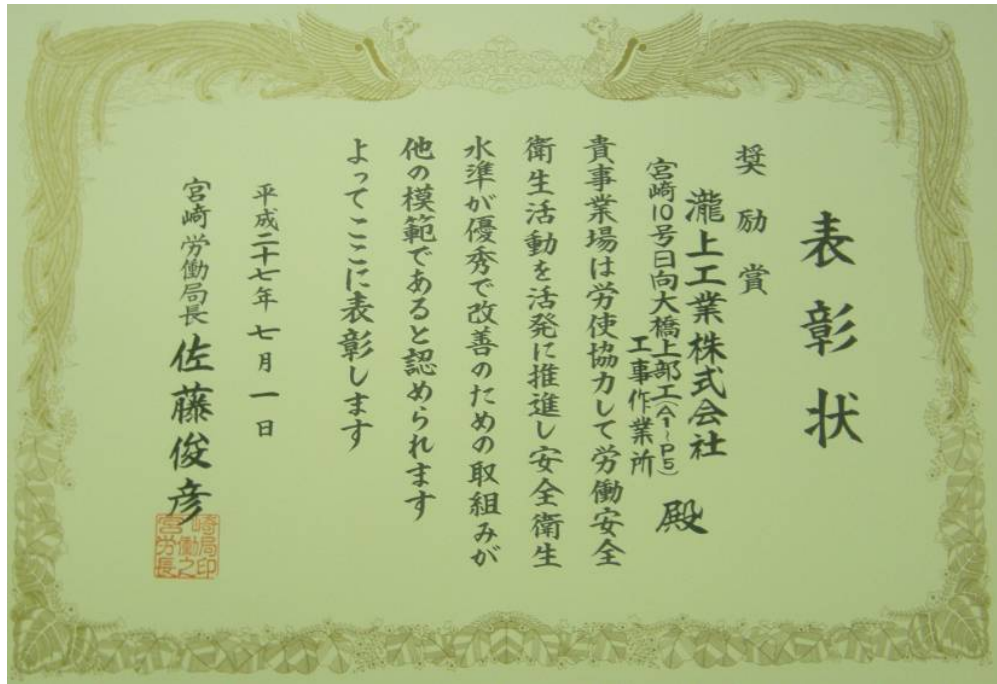 表彰状
奨励賞
瀧上工業株式会社
宮崎10号日向大橋上部工(A1~P5)
工事作業所
殿
貴事業場は労使協力して労働安全
衛生活動を活発に推進し安全衛生
水準が優秀で改善のための取組みが
他の模範であると認められます
よってここに表彰します
平成二十七年七月一日
宮崎労働局長 佐藤俊彦
宮崎労働局長之印